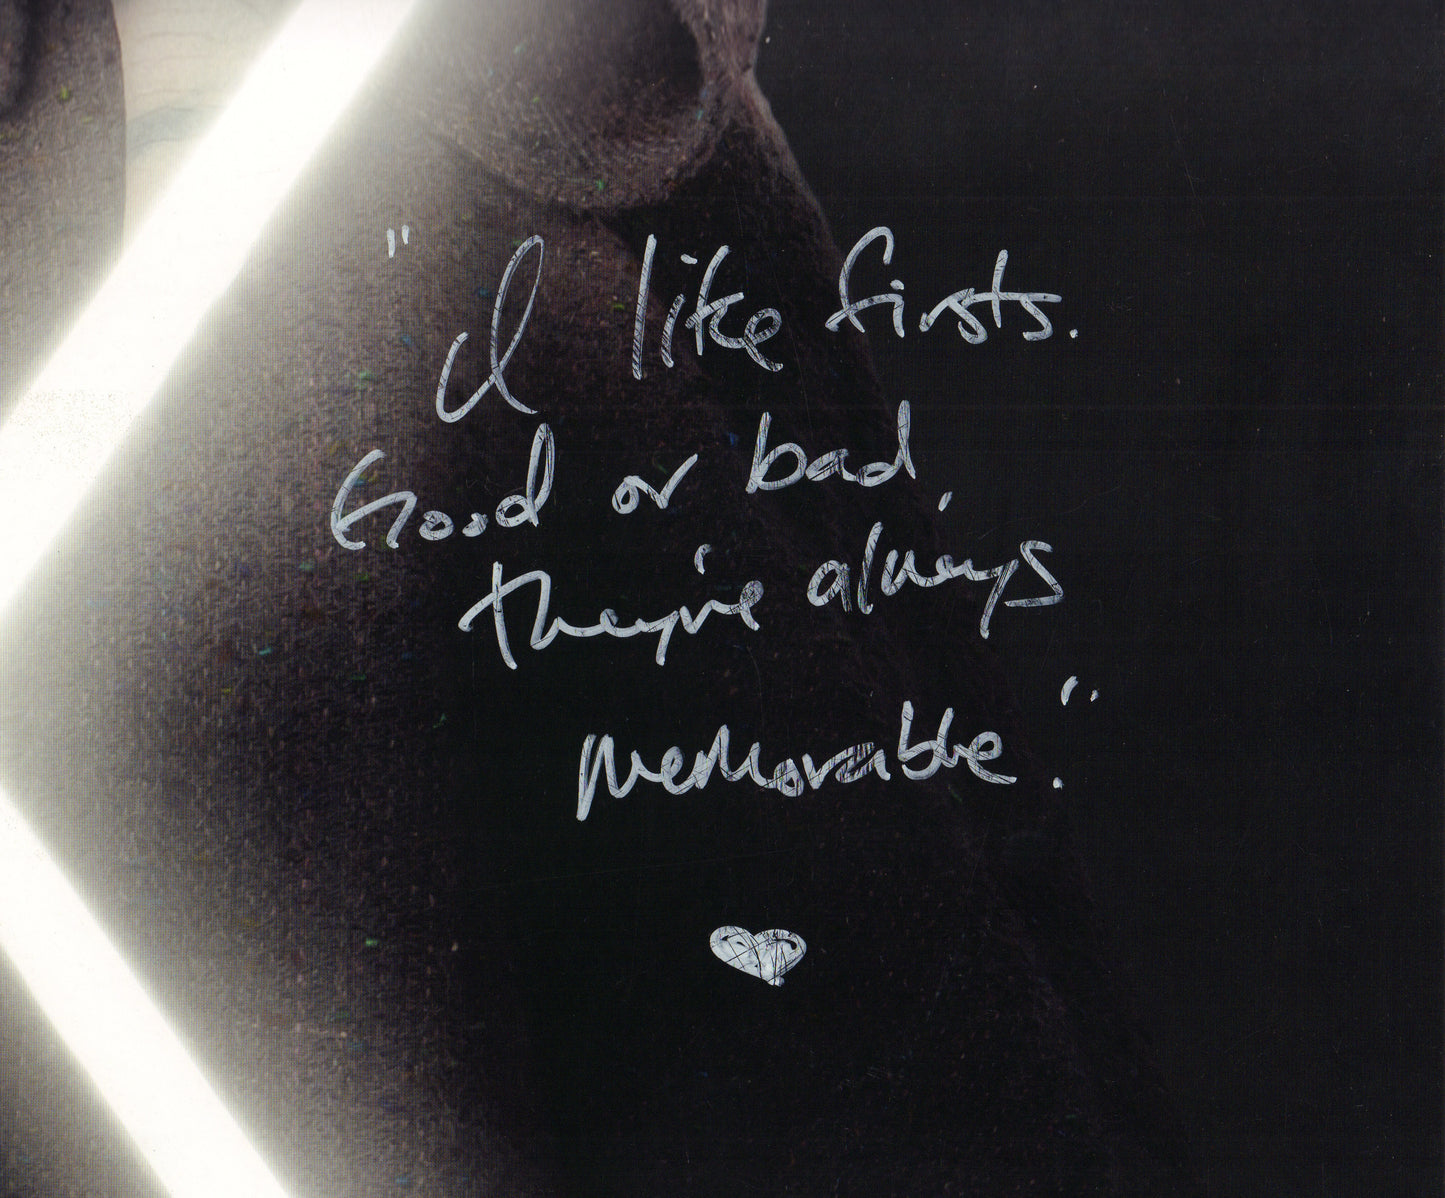 "I like firsts.
Good or bad,
they're always
memorable."